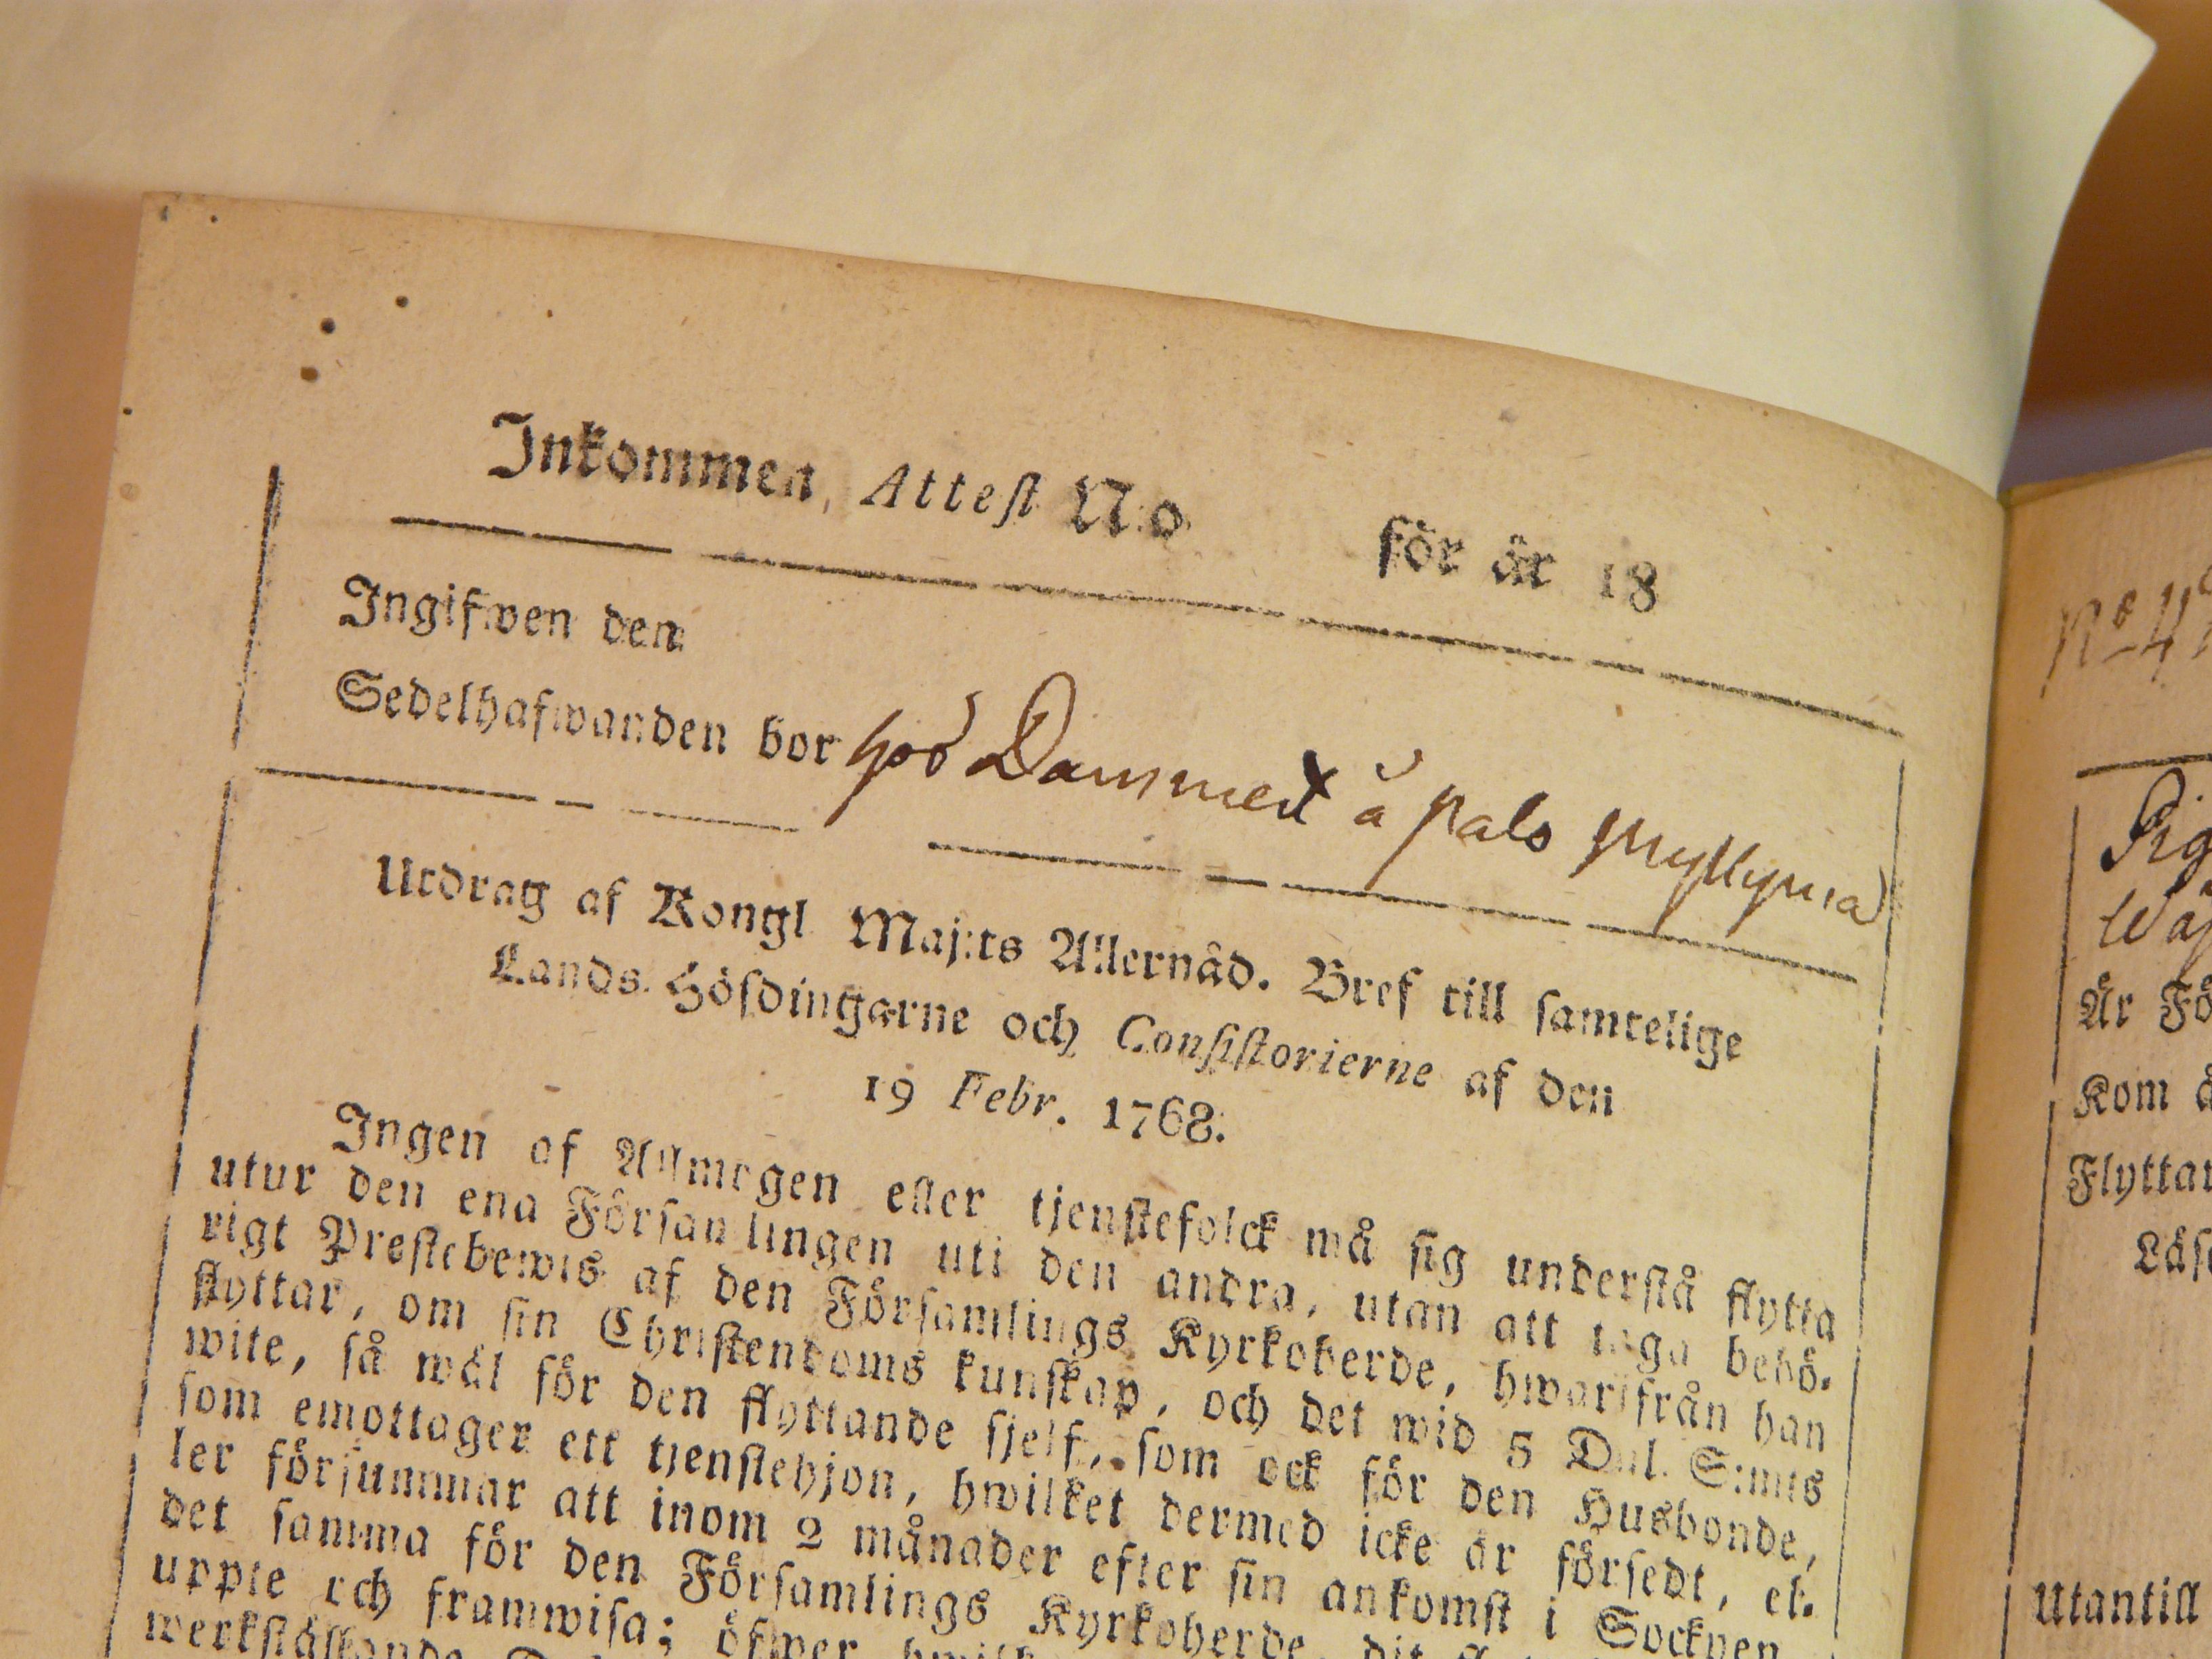 Inkommen, Attest N:o för år 18
Ingifwen den
Sedelhafwanden bor hos Dammert å pals Myllyma
Utdrag af Kongl Maj:ts Allernåd. Bref till samtelige
Lands-Höfdingarne och Consistorierne af den
19 Febr. 1768.
Ingen af Allmogen eller tjenstefolck må sig understå flytta
utur den ena Församlingen uti den andra, utan att taga behö-
rigt Prestebewis af den Församlings Kyrkoherde, hwarifrån han
flyttar, om sin Christendoms kunskap, och det wid 5 Dal. S:mts
wite, så wäl för den flyttande sjelf, som ock för den Husbonde,
som emottager ett tjenstehjon, hwilket dermed icke är försedt, el-
ler försummar att inom 2 månader efter sin ankomst i Socknen
det samma för den Församlings Kyrkoherde, dit
uppte och framwisa; öfwer
werkställande
N:o 4
Pig
Wa
Är Fö
Kom å
Flyttar
Läse
Utantill